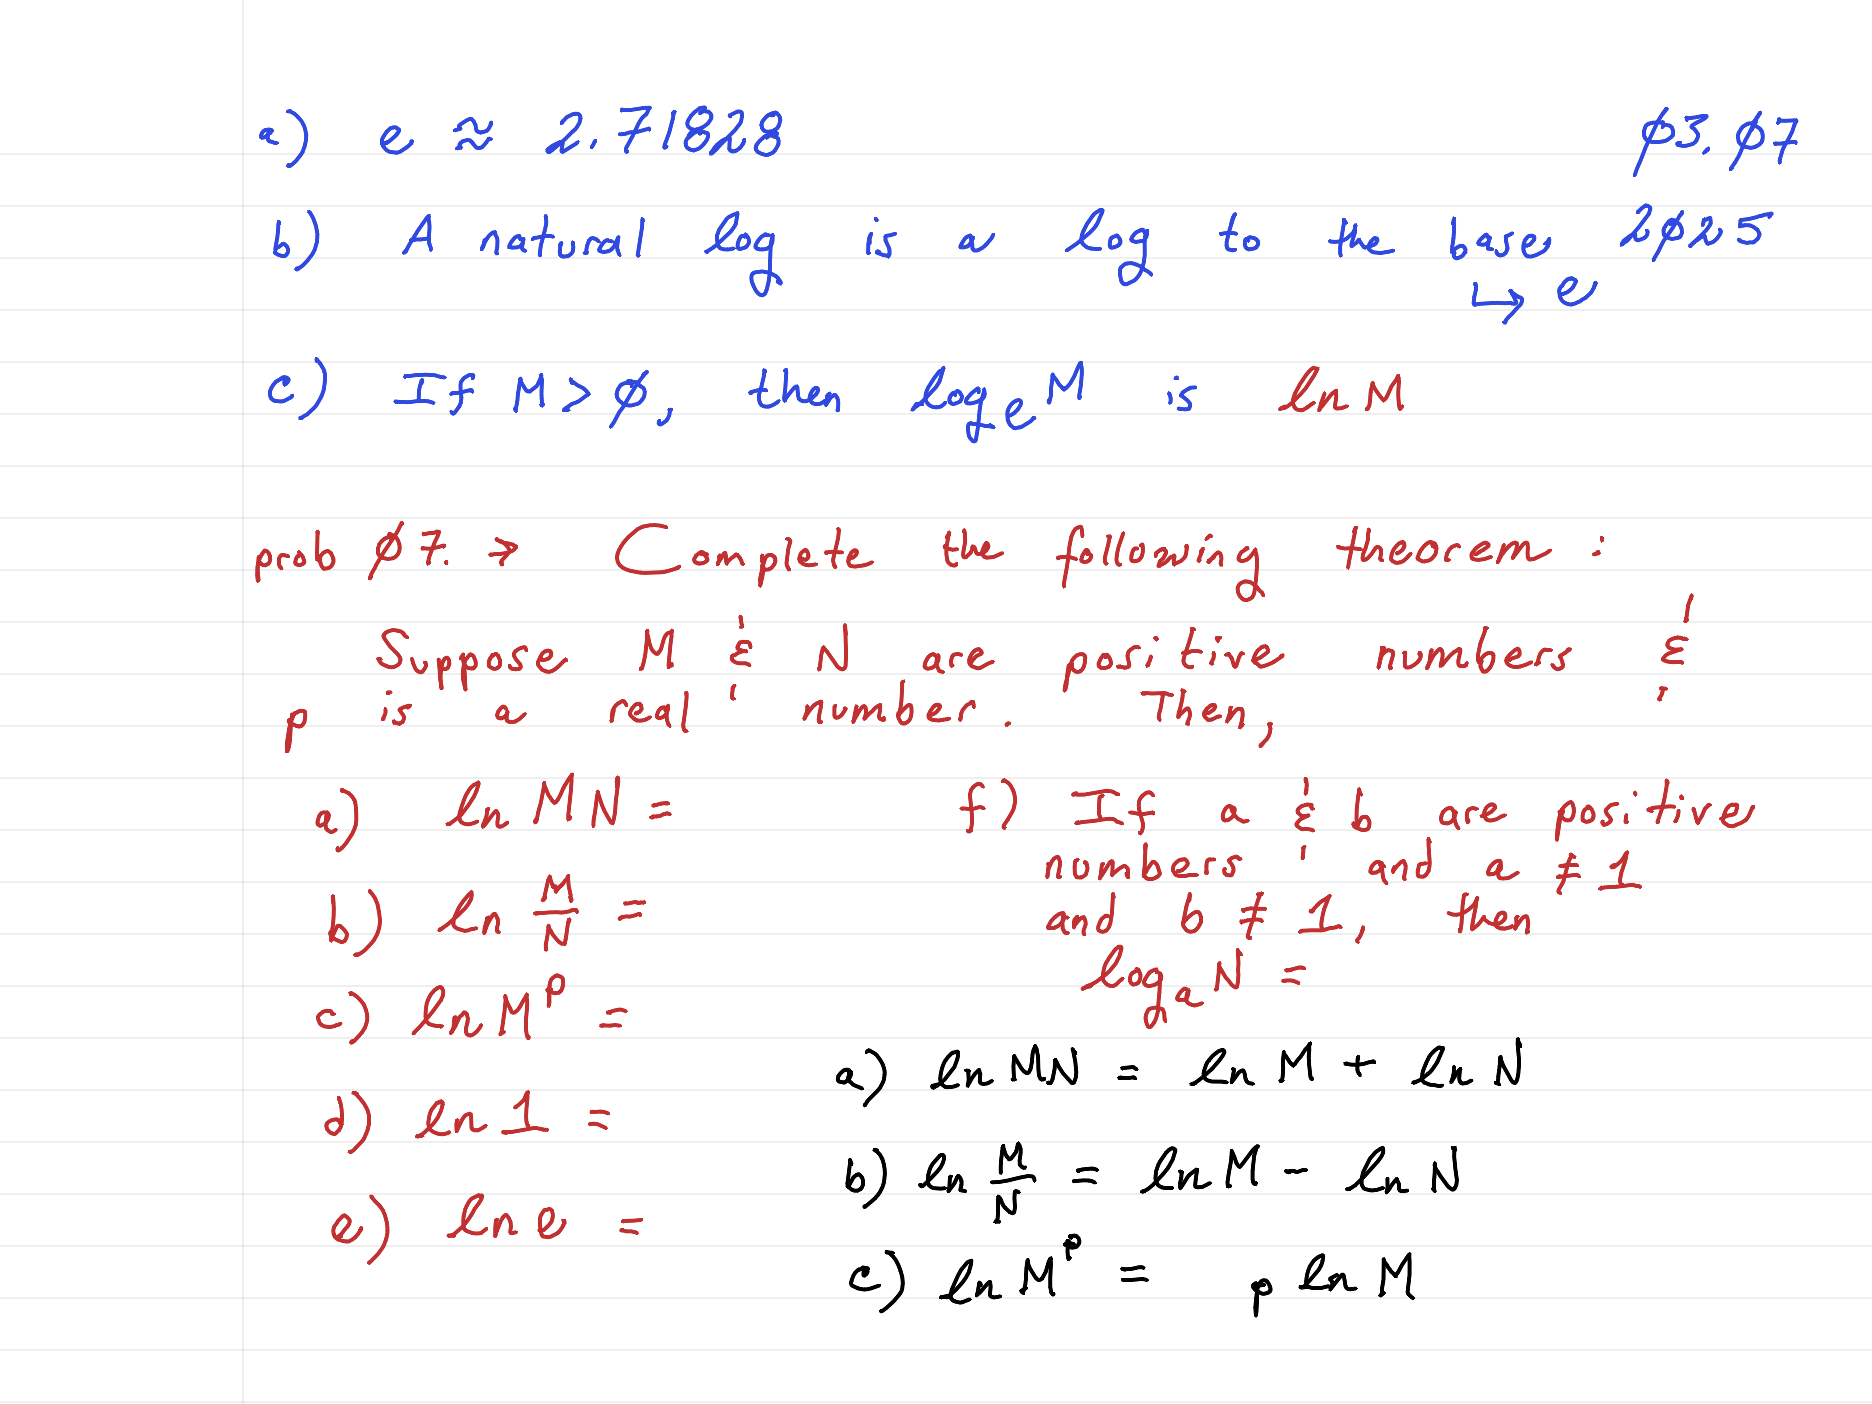 a) e ≈ 2.71828
Ø3.Ø7
b) A natural log is a log to the base
2Ø25
↳ e
c) If M > Ø, then logₑ M is ln M
prob Ø7. → Complete the following theorem :
Suppose M & N are positive numbers &
p is a real number. Then,
a) ln MN =
b) ln M/N =
c) ln Mᵖ =
d) ln 1 =
e) ln e =
f) If a & b are positive
numbers and a ≠ 1
and b ≠ 1, then
logₐ N =
a) ln MN = ln M + ln N
b) ln M/N = ln M - ln N
c) ln Mᵖ = p ln M